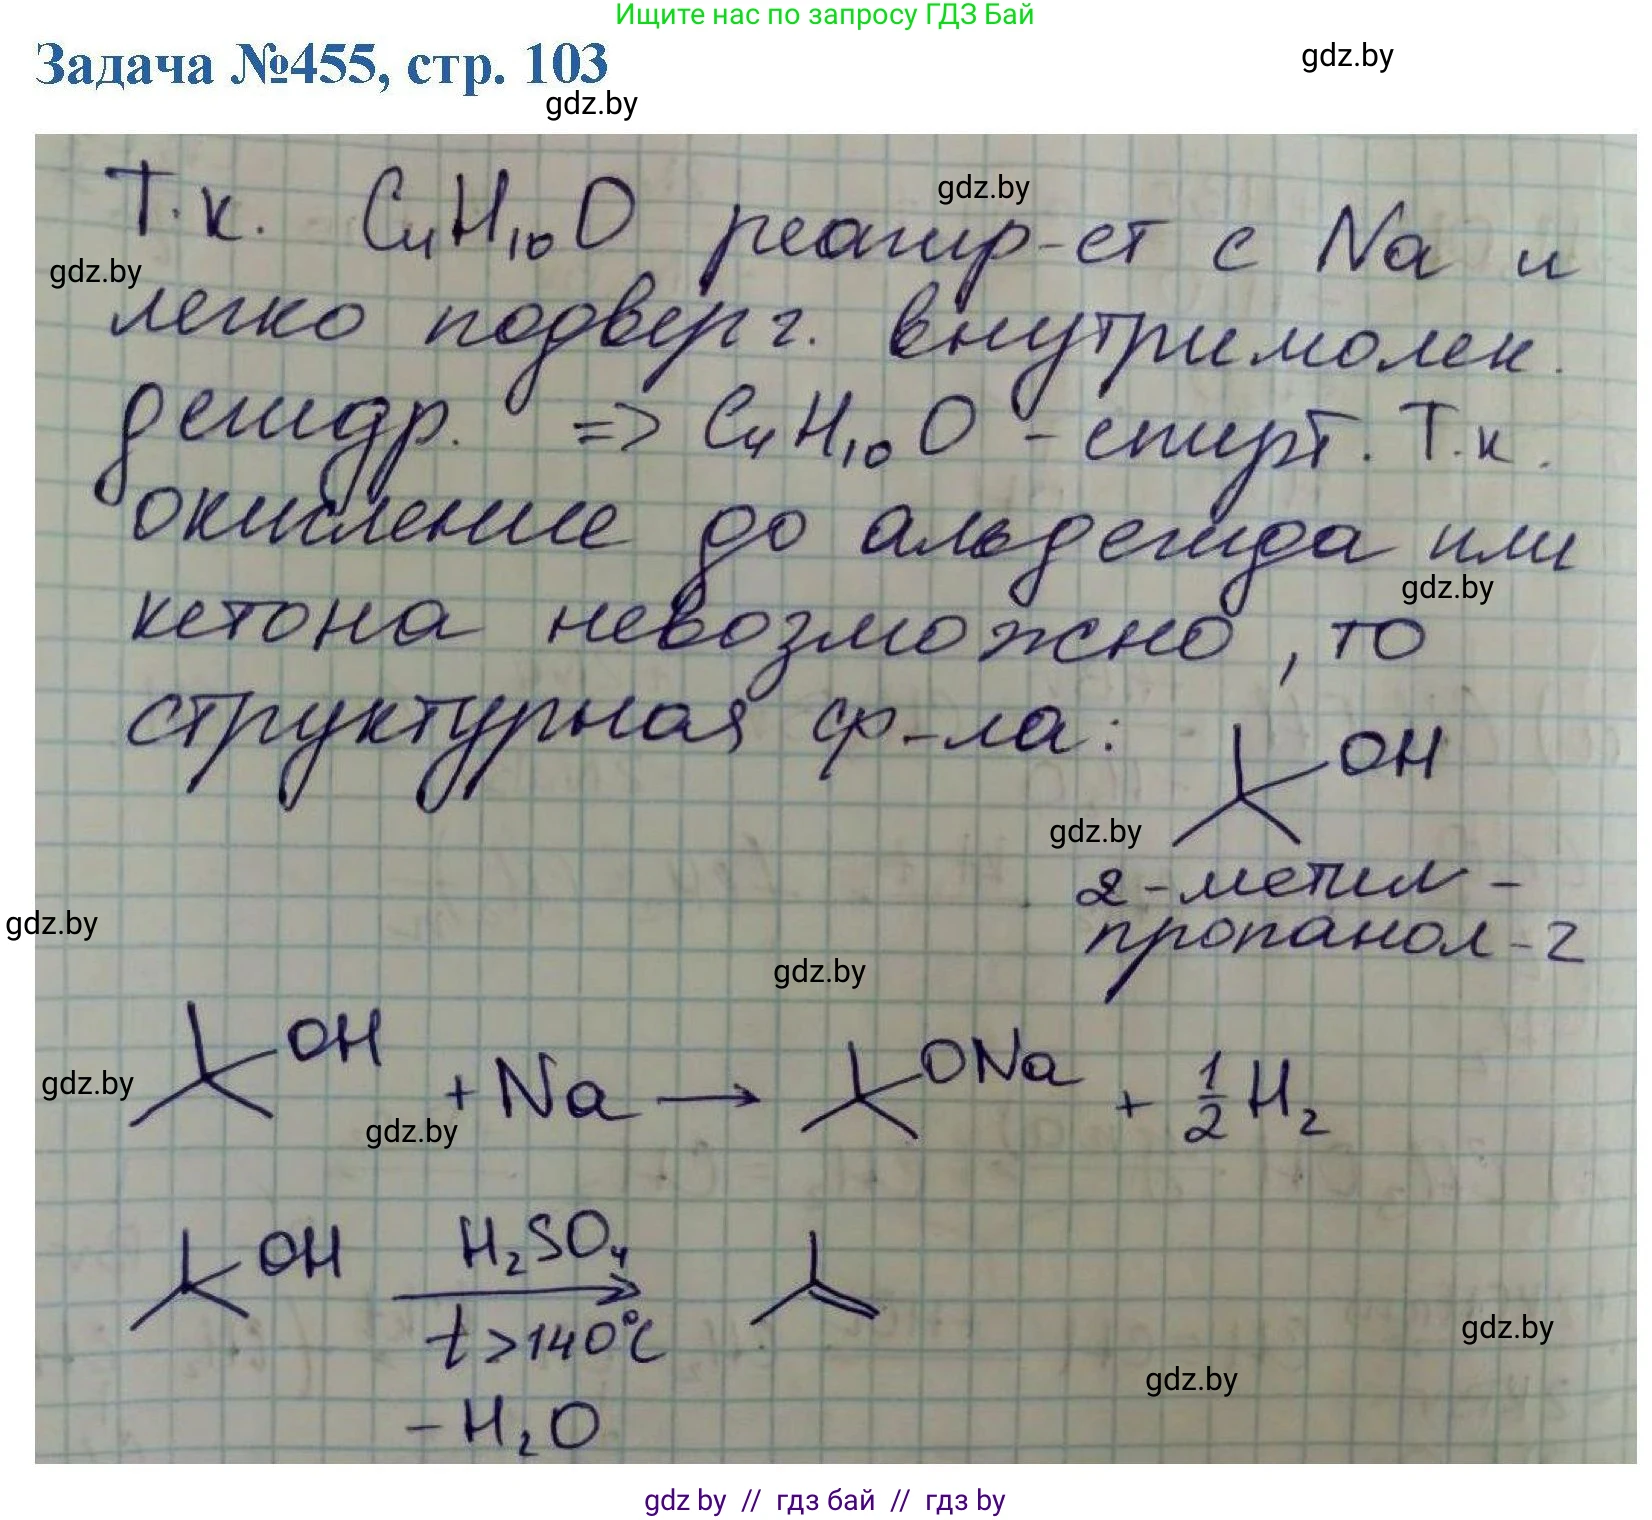 Ищите нас по запросу ГДЗ Бай
Задача №455, стр. 103
gdz.by
gdz.by
Т.к. C₄H₁₀O реагир-ет с Na и
gdz.by
gdz.by
легко подверг. внутримолек.
дегидр. => C₄H₁₀O - спирт. Т.к.
окисление до альдегида или
gdz.by
кетона невозможно, то
структурная ф-ла:
OH
gdz.by
2-метил-
пропанол-2
gdz.by
gdz.by
OH + Na → ONa + 1/2 H₂
gdz.by
gdz.by
OH H₂SO₄
t > 140°C
- H₂O
gdz.by
gdz.by
gdz by // гдз бай // гдз by